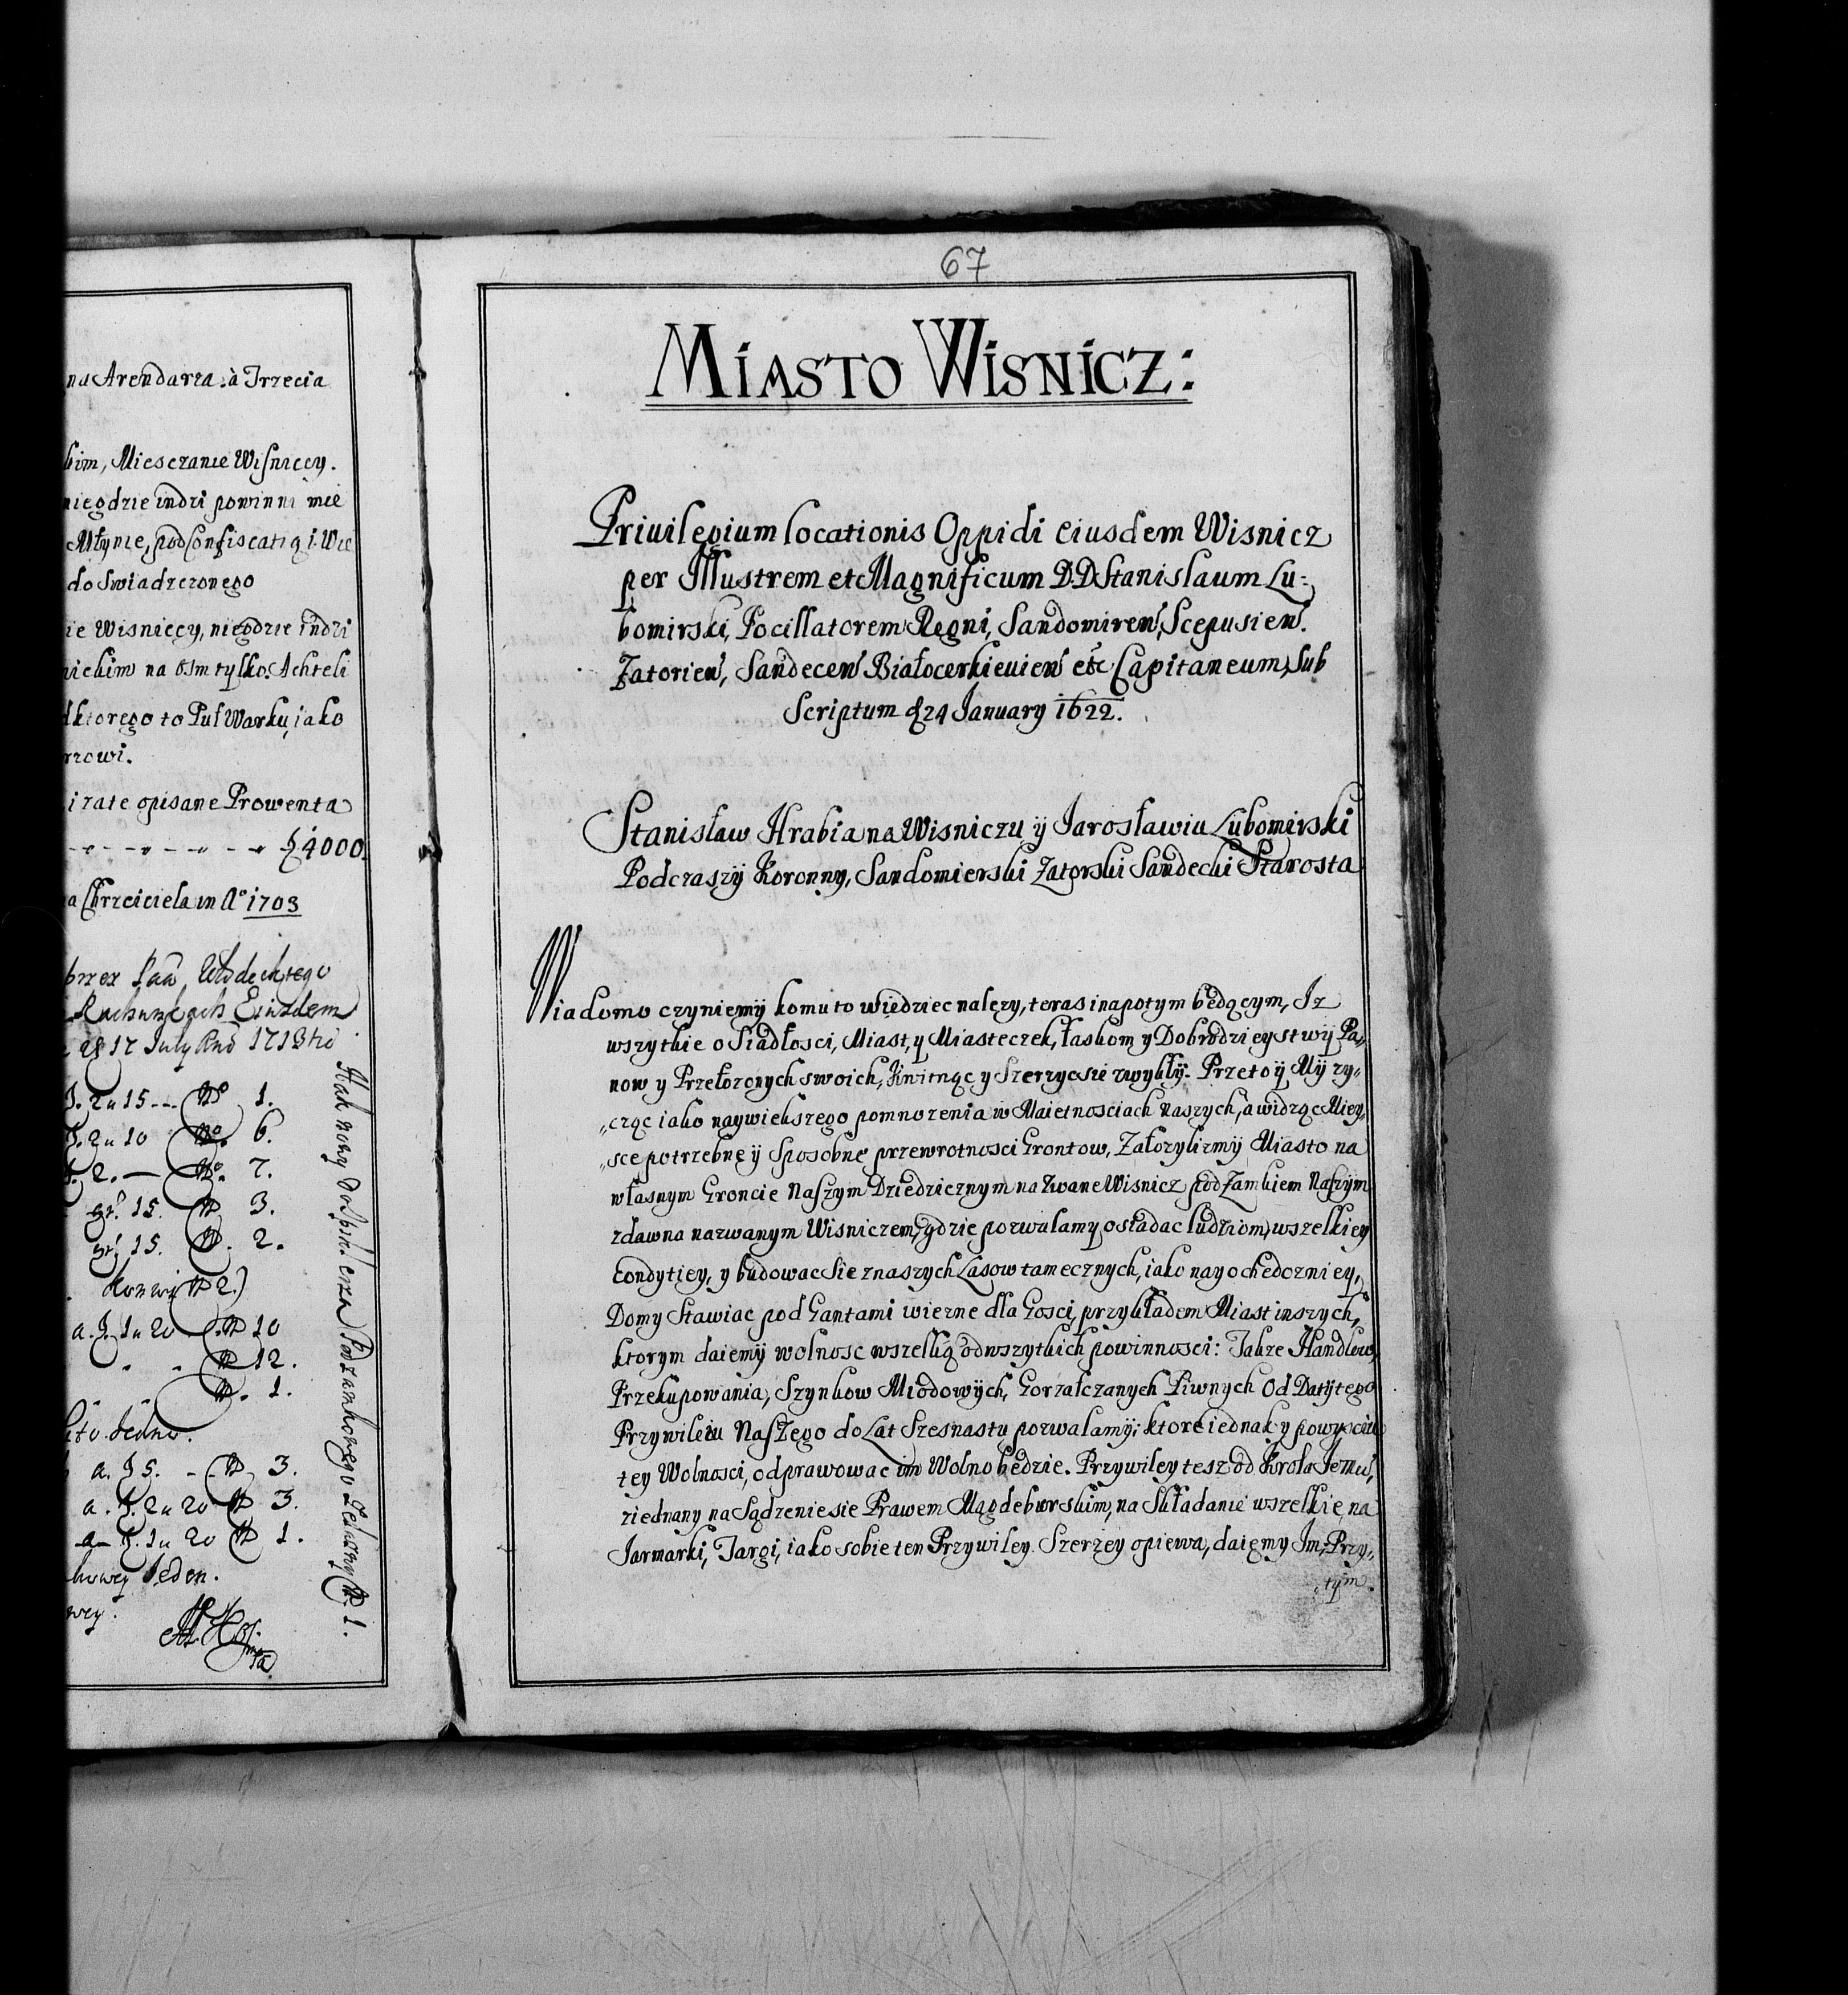 na Arendarza. à Trzecia
bim, Miesczanie Wisniccy.
niegdzie indzi powinni mle
Młynie, pod Confiscatią i Wie
do Swiadczonego
ie Wisniccy, niegdzie indzi
nickim na osm tylko Achteli
dktorego to Puł Warku, iako
rzowi.
i rate opisane Prowenta
4000.
a Chrzciciela in Aº 1703
przez
Rachunkach Eiusdem
17 July 1713
2u15 --- Nº 1.
2u10 Nº 6.
2. — Nº 7.
gr. 15. N 3.
gr. 15. N. 2.
N 2.)
a. 1u20 N 10
N 12.
N. 1.
Jedno.
a. 5. - N 3.
a. 2u20 N 3.
a 1u20 N 1.
howey Jeden.
wey.
Hak nowy N. 1.
67
MIASTO WISNICZ:
Priuilegium locationis Oppidi eiusdem Wisnicz
per Illustrem et Magnificum D.D. Stanislaum Lu-
bomirski, Pocillatorem Regni, Sandomiren, Scepusien.
Zatorien, Sandecen Białocerkieuien etc Capitaneum, Sub
Scriptum d 24 January 1622.
Stanisław Hrabia na Wisniczu ÿ Jarosławiu Lubomirski
Podczaszÿ Koronny, Sandomierski Zatorski Sandecki Starosta
Wiadomo czyniemÿ komu to wiedziec nalezy, teras i napotym będącym, Iz
wszytkie oSiadłosci, Miast, y Miasteczek, łaskom y Dobrodzieystwÿ Pa„
now y Przełozonych swoich, kwitnąc y Szerzyc sie zwykłÿ. Przeto ÿ Mÿ zy„
„cząc iako naywiekszego pomnozenia w Maietnosciach naszych, a widząc Miey„
„sce potrzebne ÿ Sposobne przewrotnosci Grontow, Załozylizmÿ Miasto na
własnym Groncie Naszym Dziedzicznym nazwane Wisnicz pod Zamkiem Naszÿm
zdawna nazwanym Wisniczem, gdzie pozwalamy osładac ludziom, wszelkiey
Condytiey, y budowac sie z naszych Lasow tamecznych, iako nayochedozniey,
Domy Stawiac pod Gantami wierne dla Gosci, przykładem Miast inszych,
ktorym daiemÿ wolnosc wszelką od wszytkich powinnosci: Takze Handlow,
Przekupowania, Szynkow Miodowÿch, Gorzałczanych Piwnych Od Datÿ tego
Przywileiu Naszego do Lat Szesnastu pozwalamÿ; ktore iednak y powysciu
tey Wolnosci, odprawowac im Wolno będzie. Przywiley tesz od Krola Jemu,
ziednany na Sądzenie sie Prawem Magdeburskim, na Składanie wszelkie, na
Jarmarki, Targi, iako sobie ten Przywiley Szerzey opiewa, daiemy Im, Przy„
„tym.